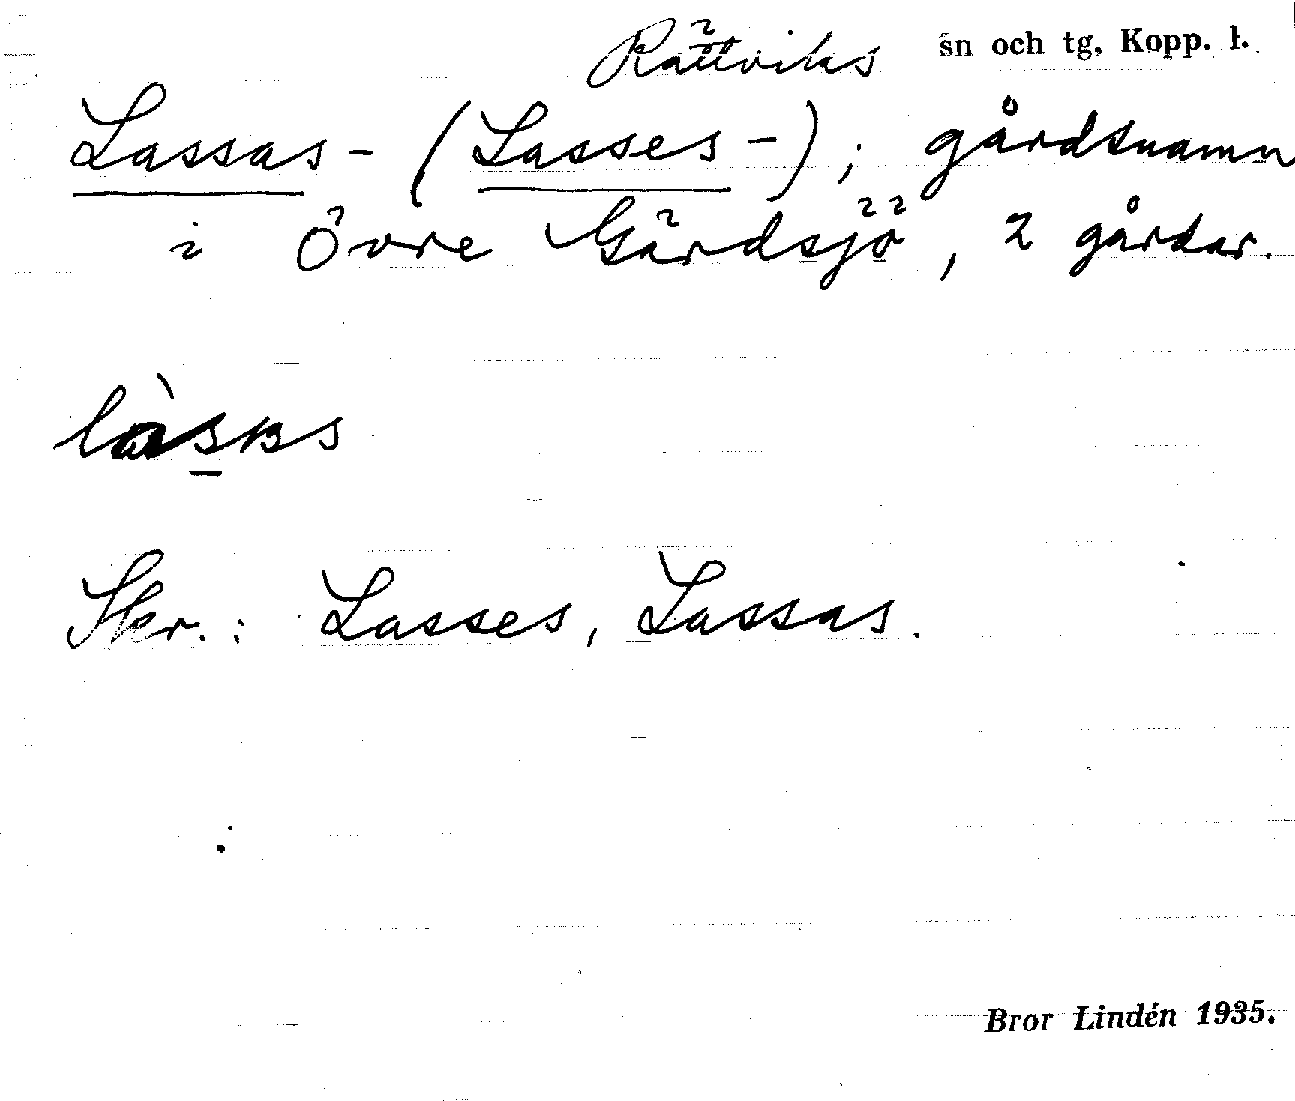 Rättviks sn och tg, Kopp. l.
Lassas- (Lasses-); gårdsnamn
i Övre Gärdsjö, 2 gårdar.
Skr.: Lasses, Lassas.
Bror Lindén 1935.